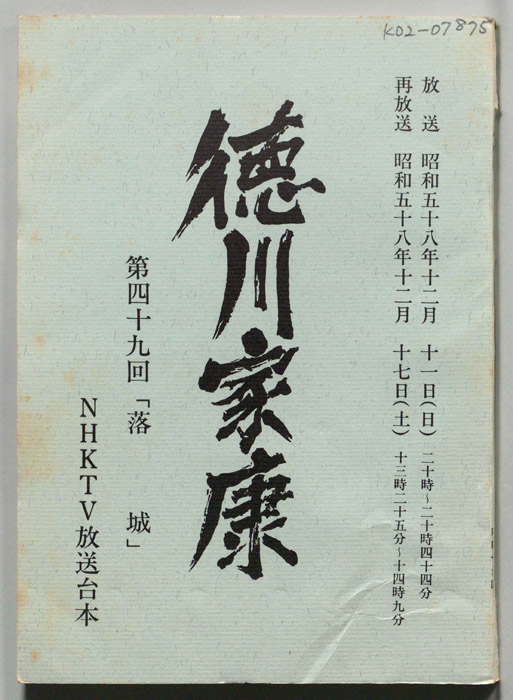 K02-07875
放送 昭和五十八年十二月 十一日(日) 二十時~二十時四十四分
再放送 昭和五十八年十二月 十七日(土) 十三時二十五分~十四時九分
徳川家康
第四十九回「落 城」
NHKTV放送台本